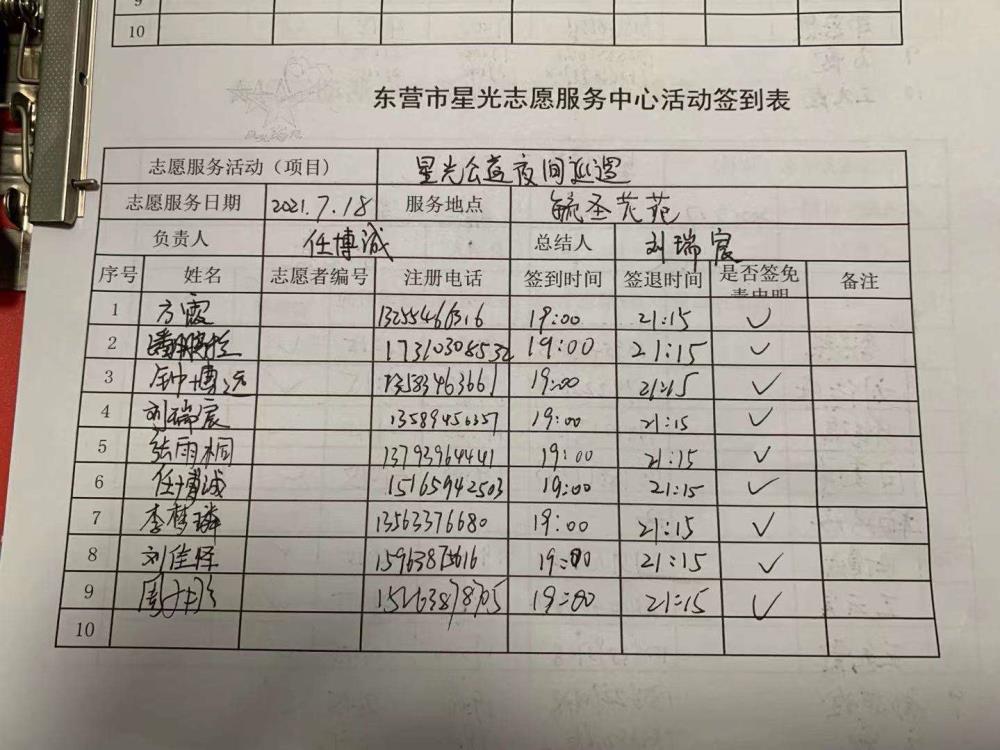 9
10
东营市星光志愿服务中心活动签到表
志愿服务活动（项目） 星光公益夜间巡逻
志愿服务日期 2021.7.18 服务地点 毓圣花苑
负责人 任博诚 总结人 刘瑞宸
序号 姓名 志愿者编号 注册电话 签到时间 签退时间 是否签免责申明 备注
1 方霞 19:00 21:15 ✓
2 17310308532 19:00 21:15 ✓
3 钟博远 13583463661 19:00 21:15 ✓
4 刘瑞宸 13589456357 19:00 21:15 ✓
5 张雨桐 13793964441 19:00 21:15 ✓
6 任博诚 15165942503 19:00 21:15 ✓
7 李梦璘 13563376680 19:00 21:15 ✓
8 刘佳怿 15963875616 19:00 21:15 ✓
9 19:00 21:15 ✓
10